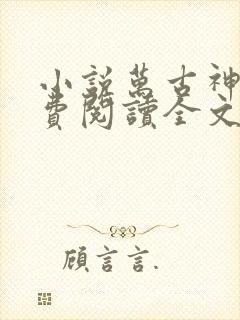 小説萬古神
費閱讀全文
顧言言.